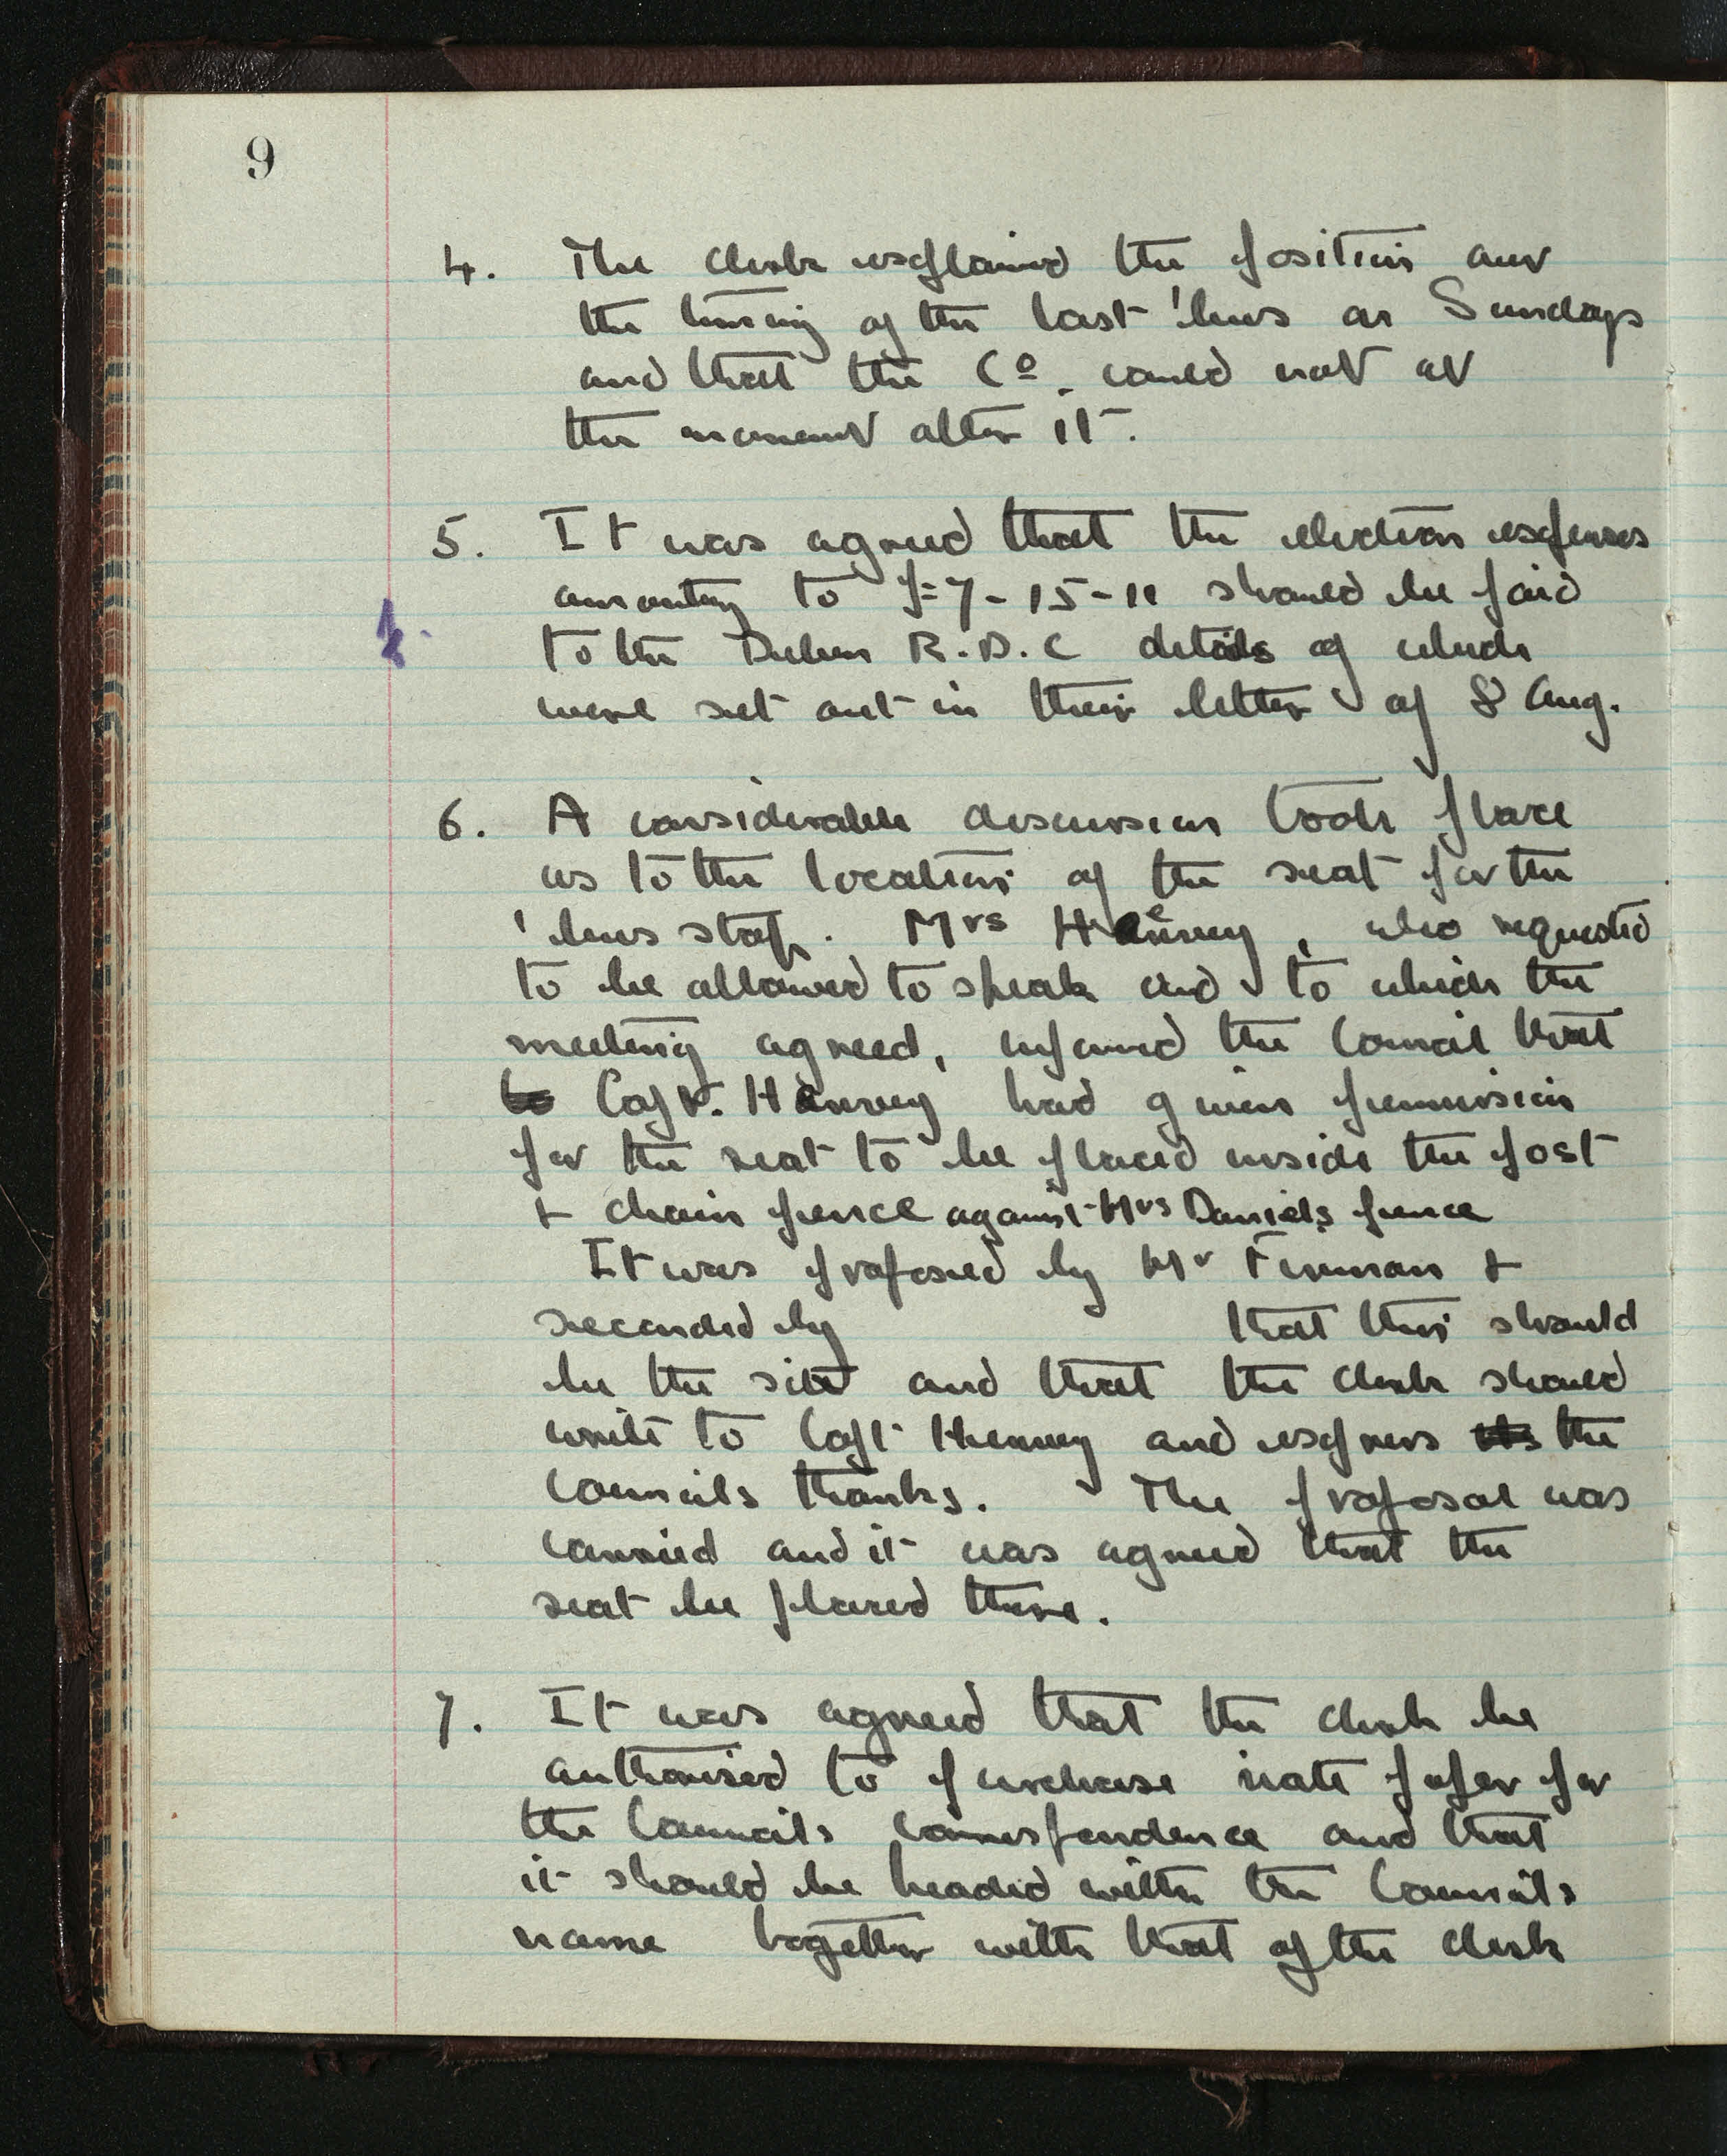 9
4. The clerk explained the position and
the timing of the last 'bus on Sundays
and that the Co. could not at
the moment alter it.
5. It was agreed that the election expenses
amounting to £7-15-11 should be paid
to the Deben R.D.C details of which
were set out in their letter of 8 Aug.
6. A considerable discussion took place
as to the location of the seat for the
'bus stop. Mrs Henvey, who requested
to be allowed to speak and to which the
meeting agreed, informed the Council that
to Capt. Henvey had given permission
for the seat to be placed inside the post
+ chain fence against Mrs Daniels fence
It was proposed by Mr Finman +
seconded by that this should
be the site and that the clerk should
write to Capt Henvey and express the
Councils thanks. The proposal was
carried and it was agreed that the
seat be placed there.
7. It was agreed that the clerk be
authorised to purchase note paper for
the Councils correspondence and that
it should be headed with the Councils
name together with that of the clerk